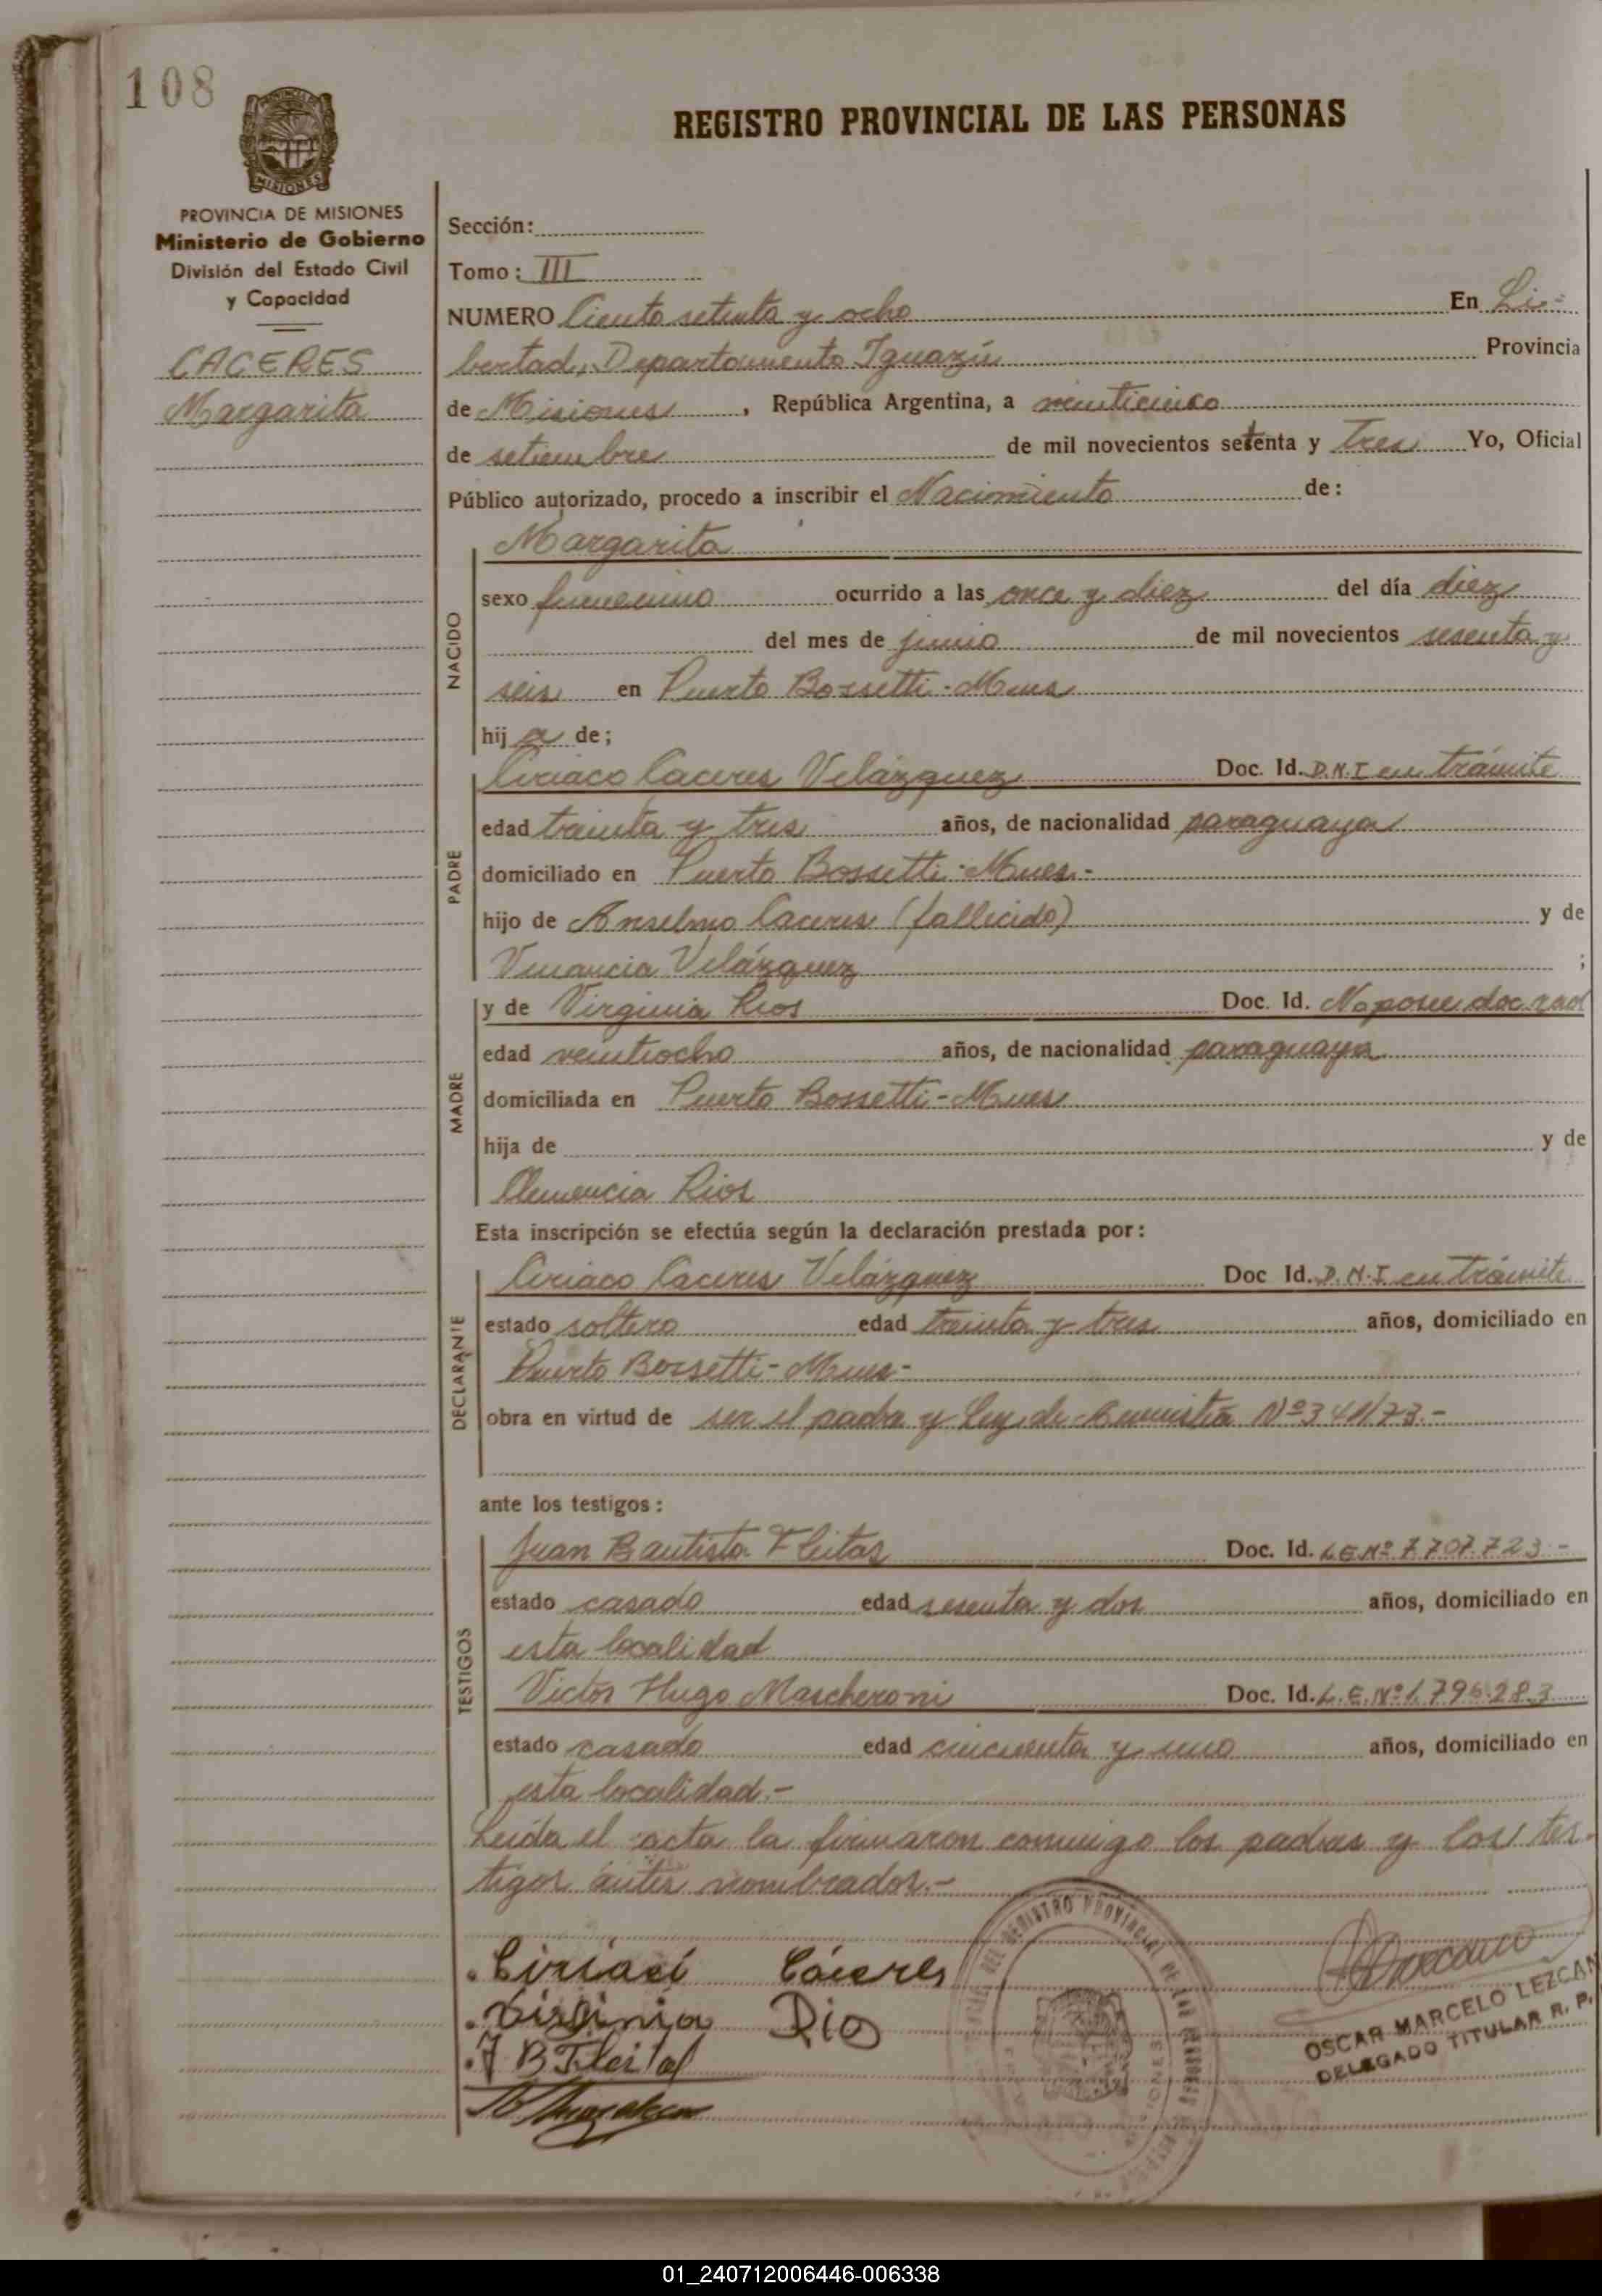 108
REGISTRO PROVINCIAL DE LAS PERSONAS
MISIONES
PROVINCIA DE MISIONES
Ministerio de Gobierno
División del Estado Civil
y Capacidad
CACERES
Margarita
Sección:
Tomo: III
NUMERO Ciento setenta y ocho En Li-
bertad, Departamento Iguazú Provincia
de Misiones, República Argentina, a veinticinco
de setiembre de mil novecientos setenta y tres Yo, Oficial
Público autorizado, procedo a inscribir el Nacimiento de:
NACIDO
Margarita
sexo femenino ocurrido a las once y diez del día diez
del mes de junio de mil novecientos sesenta y
seis en Puerto Bossetti-Mnes
hija de;
PADRE
Ciriaco Caceres Velázquez Doc. Id. D.N.I en trámite
edad treinta y tres años, de nacionalidad paraguaya
domiciliado en Puerto Bossetti-Mnes.-
hijo de Anselmo Caceres (fallecido) y de
Venancia Velázquez ;
MADRE
y de Virginia Rios Doc. Id. No posee doc. nac
edad veintiocho años, de nacionalidad paraguaya
domiciliada en Puerto Bossetti-Mnes
hija de y de
Clemencia Rios
Esta inscripción se efectúa según la declaración prestada por:
DECLARANTE
Ciriaco Caceres Velázquez Doc Id. D.N.I en trámite
estado soltero edad treinta y tres años, domiciliado en
Puerto Bossetti-Mnes-
obra en virtud de ser el padre y Ley de Amnistía Nº 341/73.-
ante los testigos:
TESTIGOS
Juan Bautista Fleitas Doc. Id. L.E.Nº 7.707.723-
estado casado edad sesenta y dos años, domiciliado en
esta localidad
Victor Hugo Mascheroni Doc. Id. L.E.Nº 1.796.283
estado casado edad cincuenta y uno años, domiciliado en
esta localidad.-
Leída el acta la firmaron conmigo los padres y los tes-
tigos antes nombrados.-
Ciriaci Cáceres
Virginia Rio
J B Fleitas
DEL REGISTRO PROVINCIAL DE LAS PERSONAS
MISIONES
OSCAR MARCELO LEZCAN
DELEGADO TITULAR R. P.
01_240712006446-006338